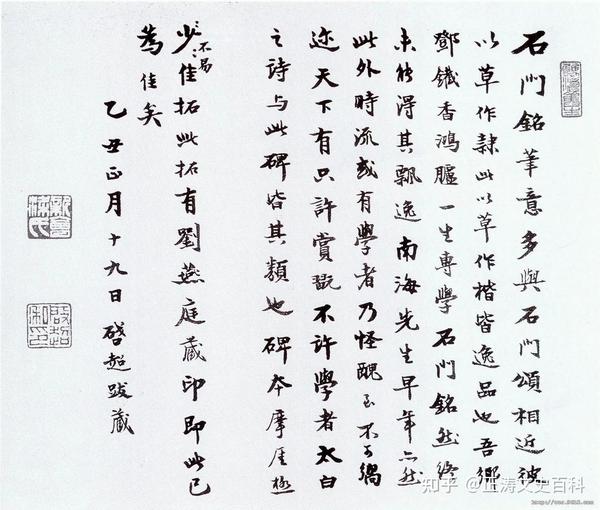 石門銘筆意多與石門頌相近彼
以草作隸此以草作楷皆逸品也吾鄉
鄧鐵香鴻臚一生專學石門銘然終
未能得其飄逸南海先生早年亦然
此外時流或有學者乃怪醜至不可嚮
迩天下有只許賞翫不許學者太白
之詩與此碑皆其類也碑本摩厓極
少佳拓此拓有劉燕庭藏印即此已
不易
為佳矣
乙丑正月十九日啓超跋藏
新會梁氏
知乎 @正涛文史百科